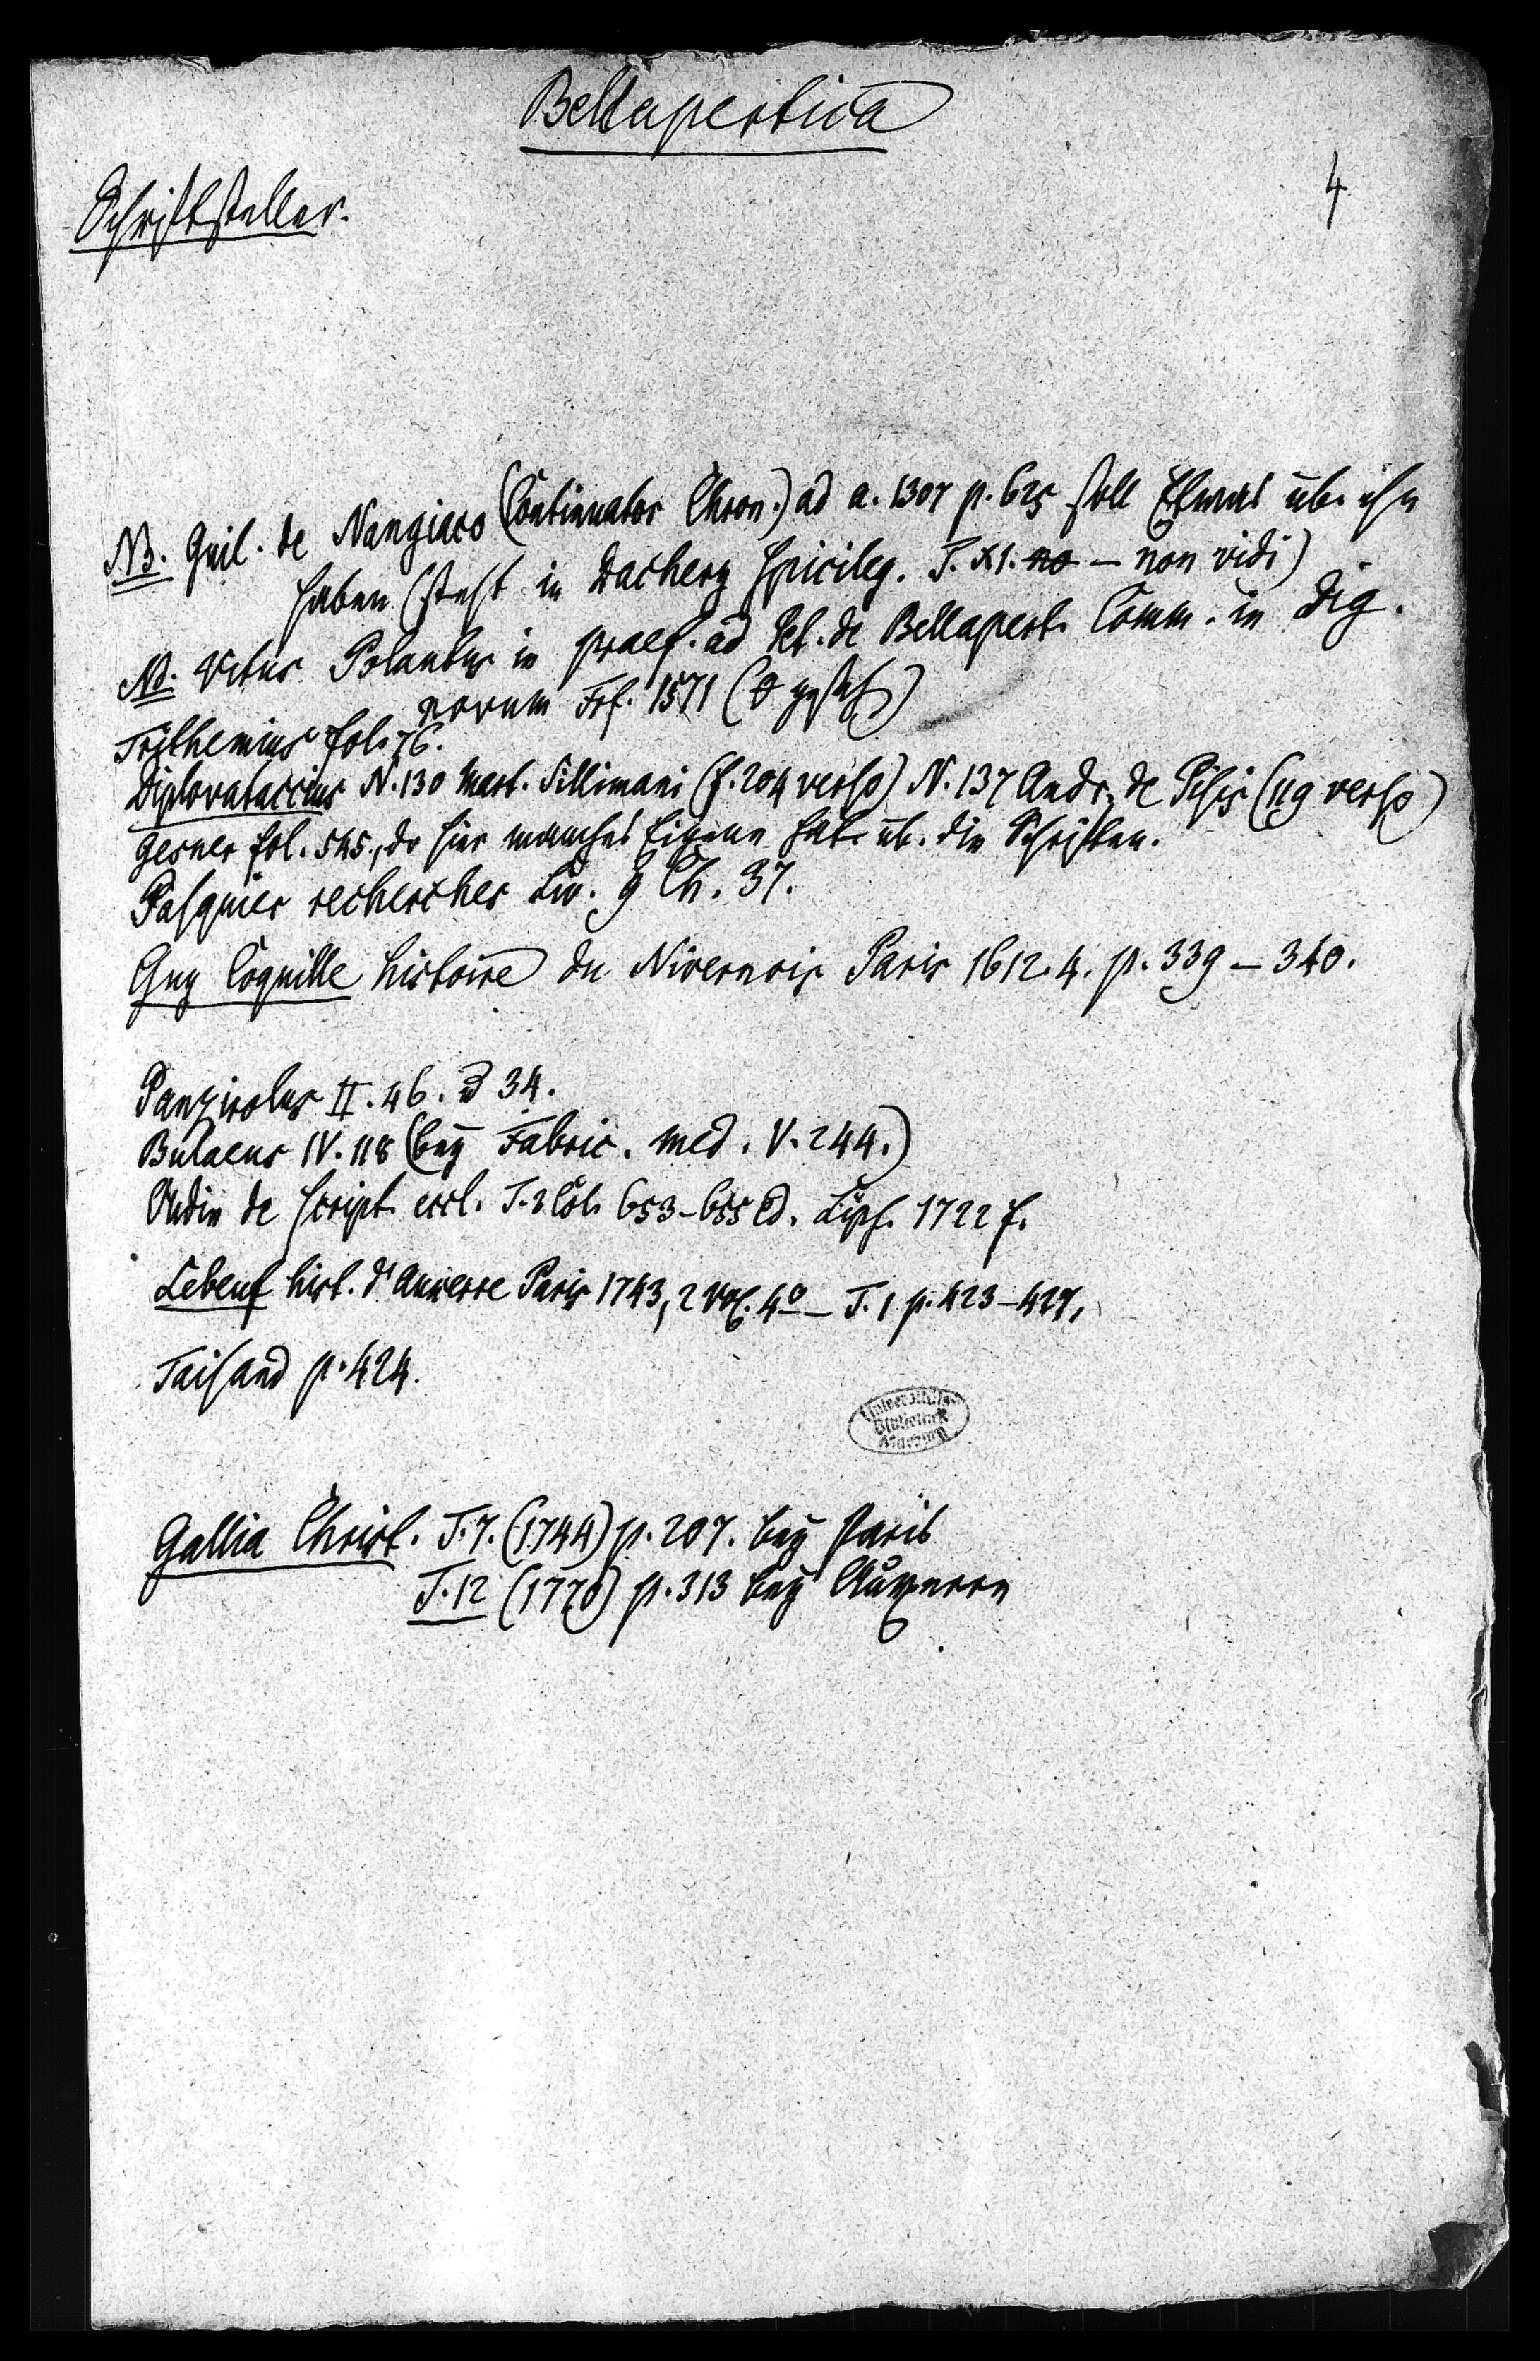 Bellapertica
4
Schriftsteller.
NB. Guil. de Nangiaco (Continuator Chron.) ad a. 1307 p. 625 soll Etwas üb. ihn
haben (steht in Dachery Spicileg. T. XI. no — non vidi)
NB. Vitus Polantus in praef. ad Pet. de Bellapert. Comm. in Dig.
novum Frf. 1571
Trithemius fol. 76.
Diplovataccius N. 130 Mart. Sillimani (f. 204 verso) N. 137 Andr. de Pisis (119 verso)
Gesner fol. 545., der hier manches Eigene hat üb. die Schriften.
Pasquier recherches Liv. 9 Ch. 37.
Guy Coquille histoire du Nivernois Paris 1612. 4. p. 339 — 340.
Panzirolus II. 46. 34.
Bulaeus IV. 118 (bey Fabric. med. V. 244.)
Oudin de script. eccl. T. 3 Col. 653–655 ed. Lips. 1722 f.
Lebeuf hist. d'Auxerre Paris 1743, 2 Vol. 4° — T. 1 p. 423–427,
Taisand p. 424.
Universitäts-
Bibliothek
Marburg
Gallia Christ. T. 7. (1744) p. 207. bey Paris
T. 12 (1770) p. 313 bey Auxerre